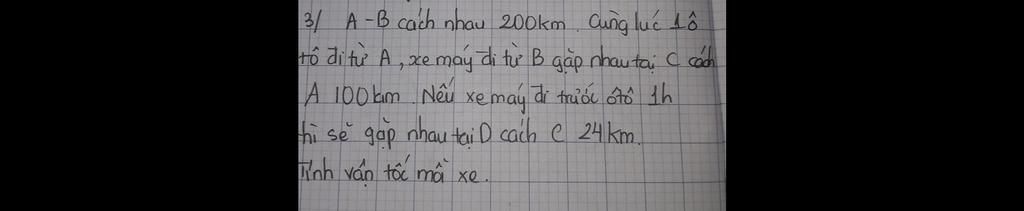 3/ A-B cách nhau 200km. Cùng lúc 1 ô
tô đi từ A, xe máy đi từ B gặp nhau tại C cách
A 100km. Nếu xe máy đi trước ôtô 1h
hì sẽ gặp nhau tại D cách C 24km.
Tính vận tốc mỗi xe.